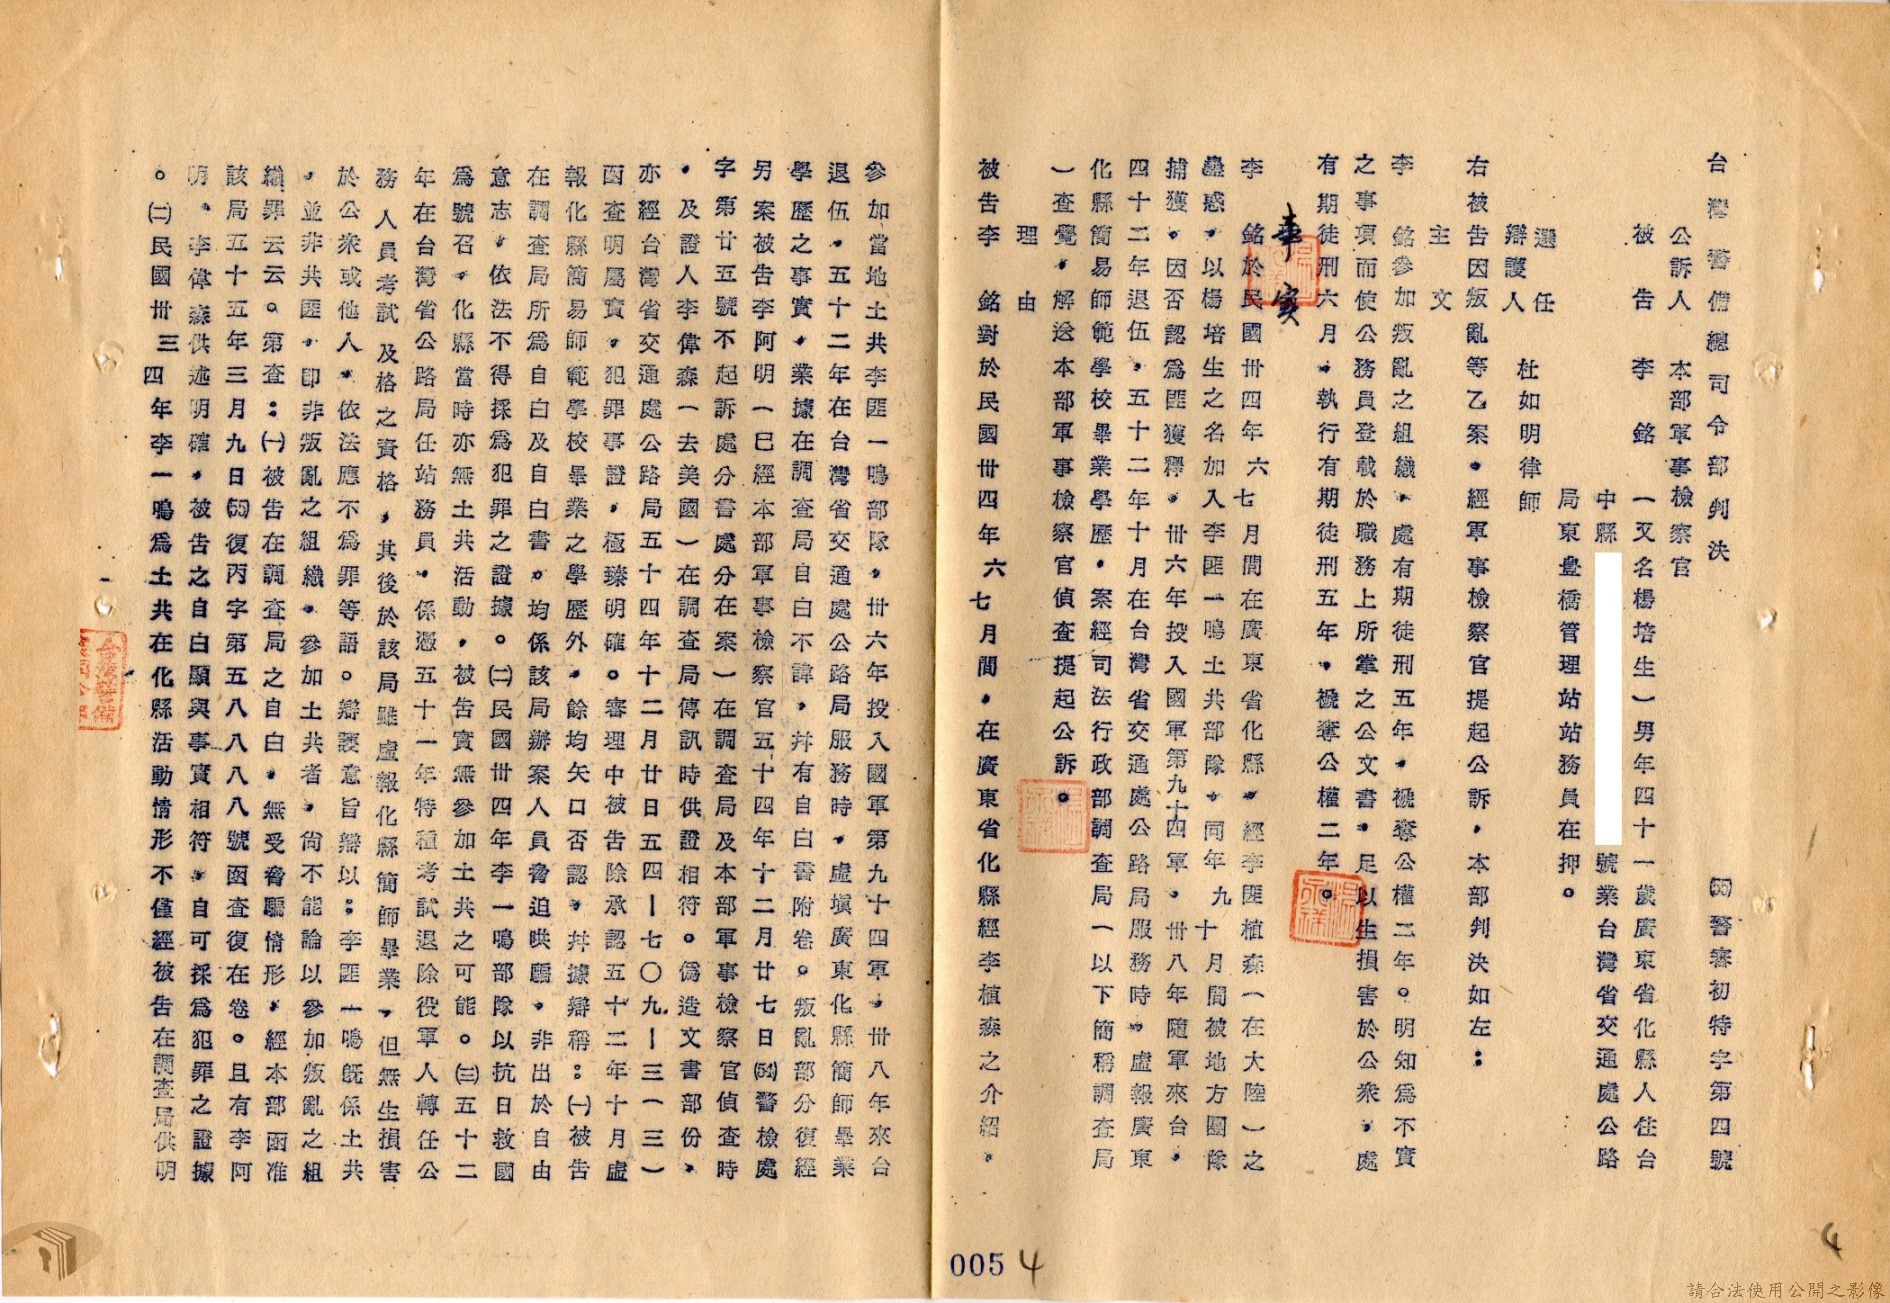 台灣警備總司令部判決　(55)警審初特字第四號
公訴人　本部軍事檢察官
被告　李　銘　(又名楊培生)男年四十一歲廣東省化縣人住台
中縣　號業台灣省交通處公路
局東豊橋管理站站務員在押。
選任
辯護人　杜如明律師
右被告因叛亂等乙案，經軍事檢察官提起公訴，本部判決如左：
主　文
李　銘參加叛亂之組織，處有期徒刑五年，褫奪公權二年。明知爲不實
之事項而使公務員登載於職務上所掌之公文書，足以生損害於公衆，處
有期徒刑六月，執行有期徒刑五年，褫奪公權二年。
事　實
李　銘於民國卅四年六七月間在廣東省化縣，經李匪植森(在大陸)之
蠱惑，以楊培生之名加入李匪一鳴土共部隊，同年九十月間被地方團隊
捕獲，因否認爲匪獲釋，卅六年投入國軍第九十四軍，卅八年隨軍來台，
四十二年退伍，五十二年十月在台灣省交通處公路局服務時，虛報廣東
化縣簡易師範學校畢業學歷，案經司法行政部調查局(以下簡稱調查局
)查覺，解送本部軍事檢察官偵查提起公訴。
理　由
被告李　銘對於民國卅四年六七月間，在廣東省化縣經李植森之介紹，
參加當地土共李匪一鳴部隊，卅六年投入國軍第九十四軍，卅八年來台
退伍，五十二年在台灣省交通處公路局服務時，虛塡廣東化縣簡師畢業
學歷之事實，業據在調查局自白不諱，幷有自白書附卷。叛亂部分復經
另案被告李阿明(已經本部軍事檢察官五十四年十二月廿七日(54)警檢處
字第廿五號不起訴處分書處分在案)在調查局及本部軍事檢察官偵查時
，及證人李偉森(去美國)在調查局傳訊時供證相符。僞造文書部份，
亦經台灣省交通處公路局五十四年十二月廿日五四－七〇九－三一三)
函查明屬實，犯罪事證，極臻明確。審理中被告除承認五十二年十月虛
報化縣簡易師範學校畢業之學歷外，餘均矢口否認，幷據辯稱：㈠被告
在調查局所爲自白及自白書，均係該局辦案人員脅迫哄騙，非出於自由
意志，依法不得採爲犯罪之證據。㈡民國卅四年李一鳴部隊以抗日救國
爲號召，化縣當時亦無土共活動，被告實無參加土共之可能。㈢五十二
年在台灣省公路局任站務員，係憑五十一年特種考試退除役軍人轉任公
務人員考試及格之資格，其後於該局雖虛報化縣簡師畢業，但無生損害
於公衆或他人，依法應不爲罪等語。辯護意旨辯以：李匪一鳴旣係土共
，並非共匪，卽非叛亂之組織，參加土共者，尙不能論以參加叛亂之組
織罪云云。第查：㈠被告在調查局之自白，無受脅騙情形，經本部函准
該局五十五年三月九日(55)復丙字第五八八八八號函查復在卷。且有李阿
明，李偉森供述明確，被告之自白顯與事實相符，自可採爲犯罪之證據
。㈡民國卅三四年李一鳴爲土共在化縣活動情形不僅經被告在調查局供明
005 4
4
請合法使用公開之影像